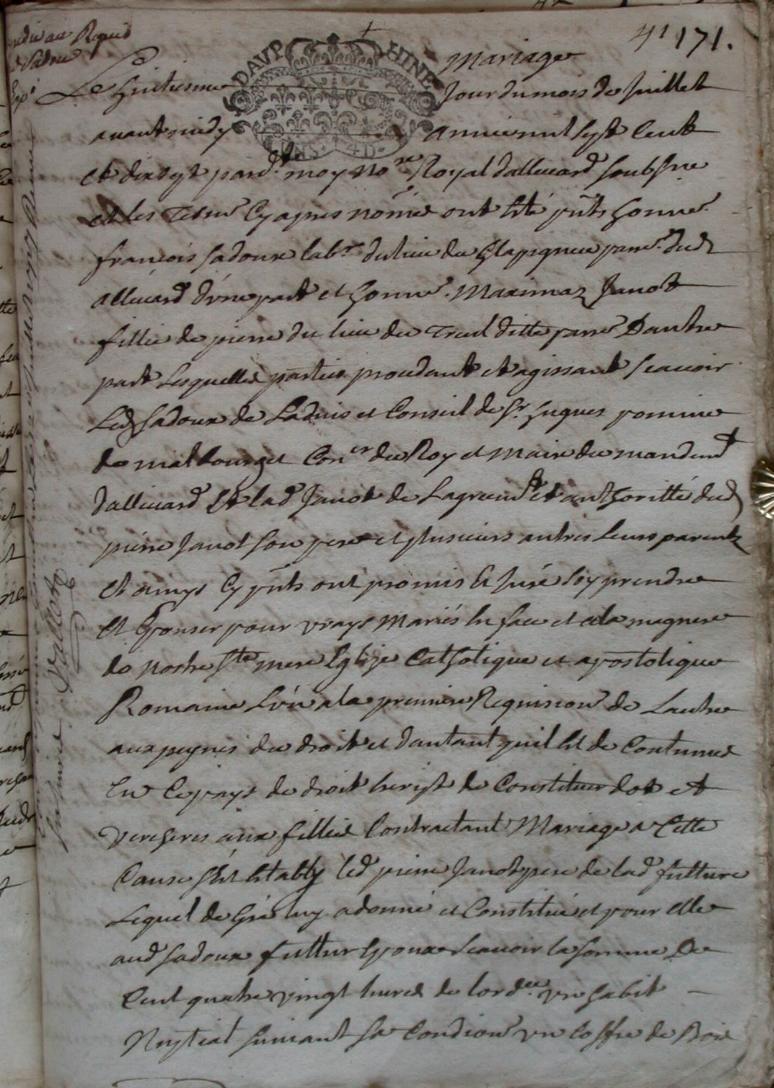 41 171.
Mariage
DAVPHINE
Le huitiesme Jour du mois de Juillet
avant midy an mil sept Cent
et dix sept pard.t moy no.re Royal dallevard soubsne
et les tesm. Cy apres nomé ont été pnts honne.
francois Sadoux lab.r du lieu du Glapigneu parre. dud
allevard d'une part et honne. Maximaz Janot
fillie de pierre du lieu du Treul ditte parre Dautre
part Lesquelles parties procedant et agissant scavoir
Led Sadoux de Ladvis et Conseil de Sr. hugues
de malbourget Con.er du Roy et Maire du mandem.t
dallevard Et lad Janot de Lagreem.t et authoritté dud
pierre Janot son pere et plusieurs autres leurs parents
et amys Cy pnts ont promis et Juré Soy prendre
et Epouser pour vrays Mariés en face et a la magnere
de nostre Ste mere Eglize Catholique et apostolique
Romaine a la premiere Requision de Lautre
aux peynes du droit et dautant quil Est de Coutume
En Ce pays de droit Escript de Constituer dot et
Vercheres aux fillies Contractant Mariage a Cette
Cause Sest Establÿ led pierre Janot pere de lad futture
Lequel de Gré luy a donné et Constitué et pour Elle
aud Sadoux futtur Epoux scavoir la somme De
Cent quatre vingt livres de lord.re un habit
Nuptial suivant sa Condion un Coffre de Bois